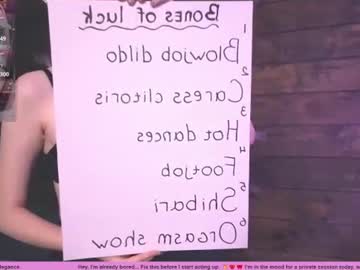 Bones of luck
1 Blowjob dildo
2 Caress clitoris
3 Hot dances
4 Footjob
5 Shibari
6 Orgasm show
300
elegance.
Hey, I'm already bored... Fix this before I start acting up.
I'm in the mood for a private session today